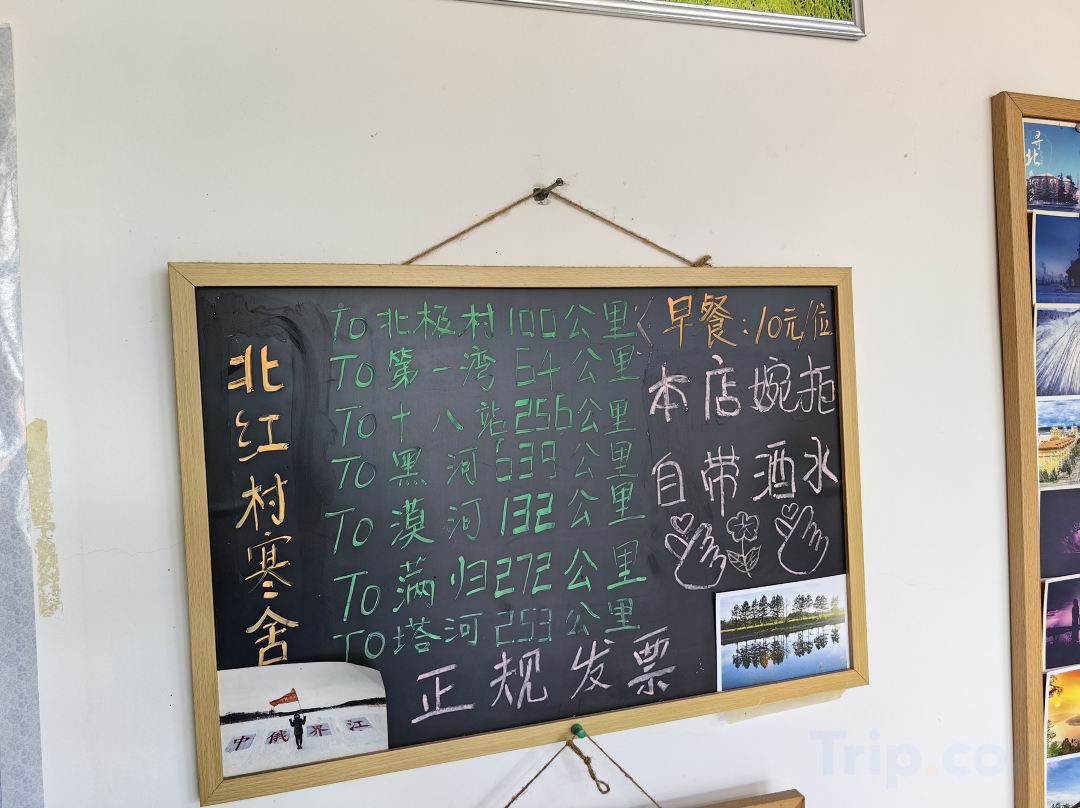 北红村寒舍
To北极村100公里
To第一湾54公里
To十八站256公里
To黑河539公里
To漠河132公里
To满归272公里
To塔河253公里
早餐:10元/位
本店婉拒
自带酒水
正规发票
中俄界江
寻北
Trip.co